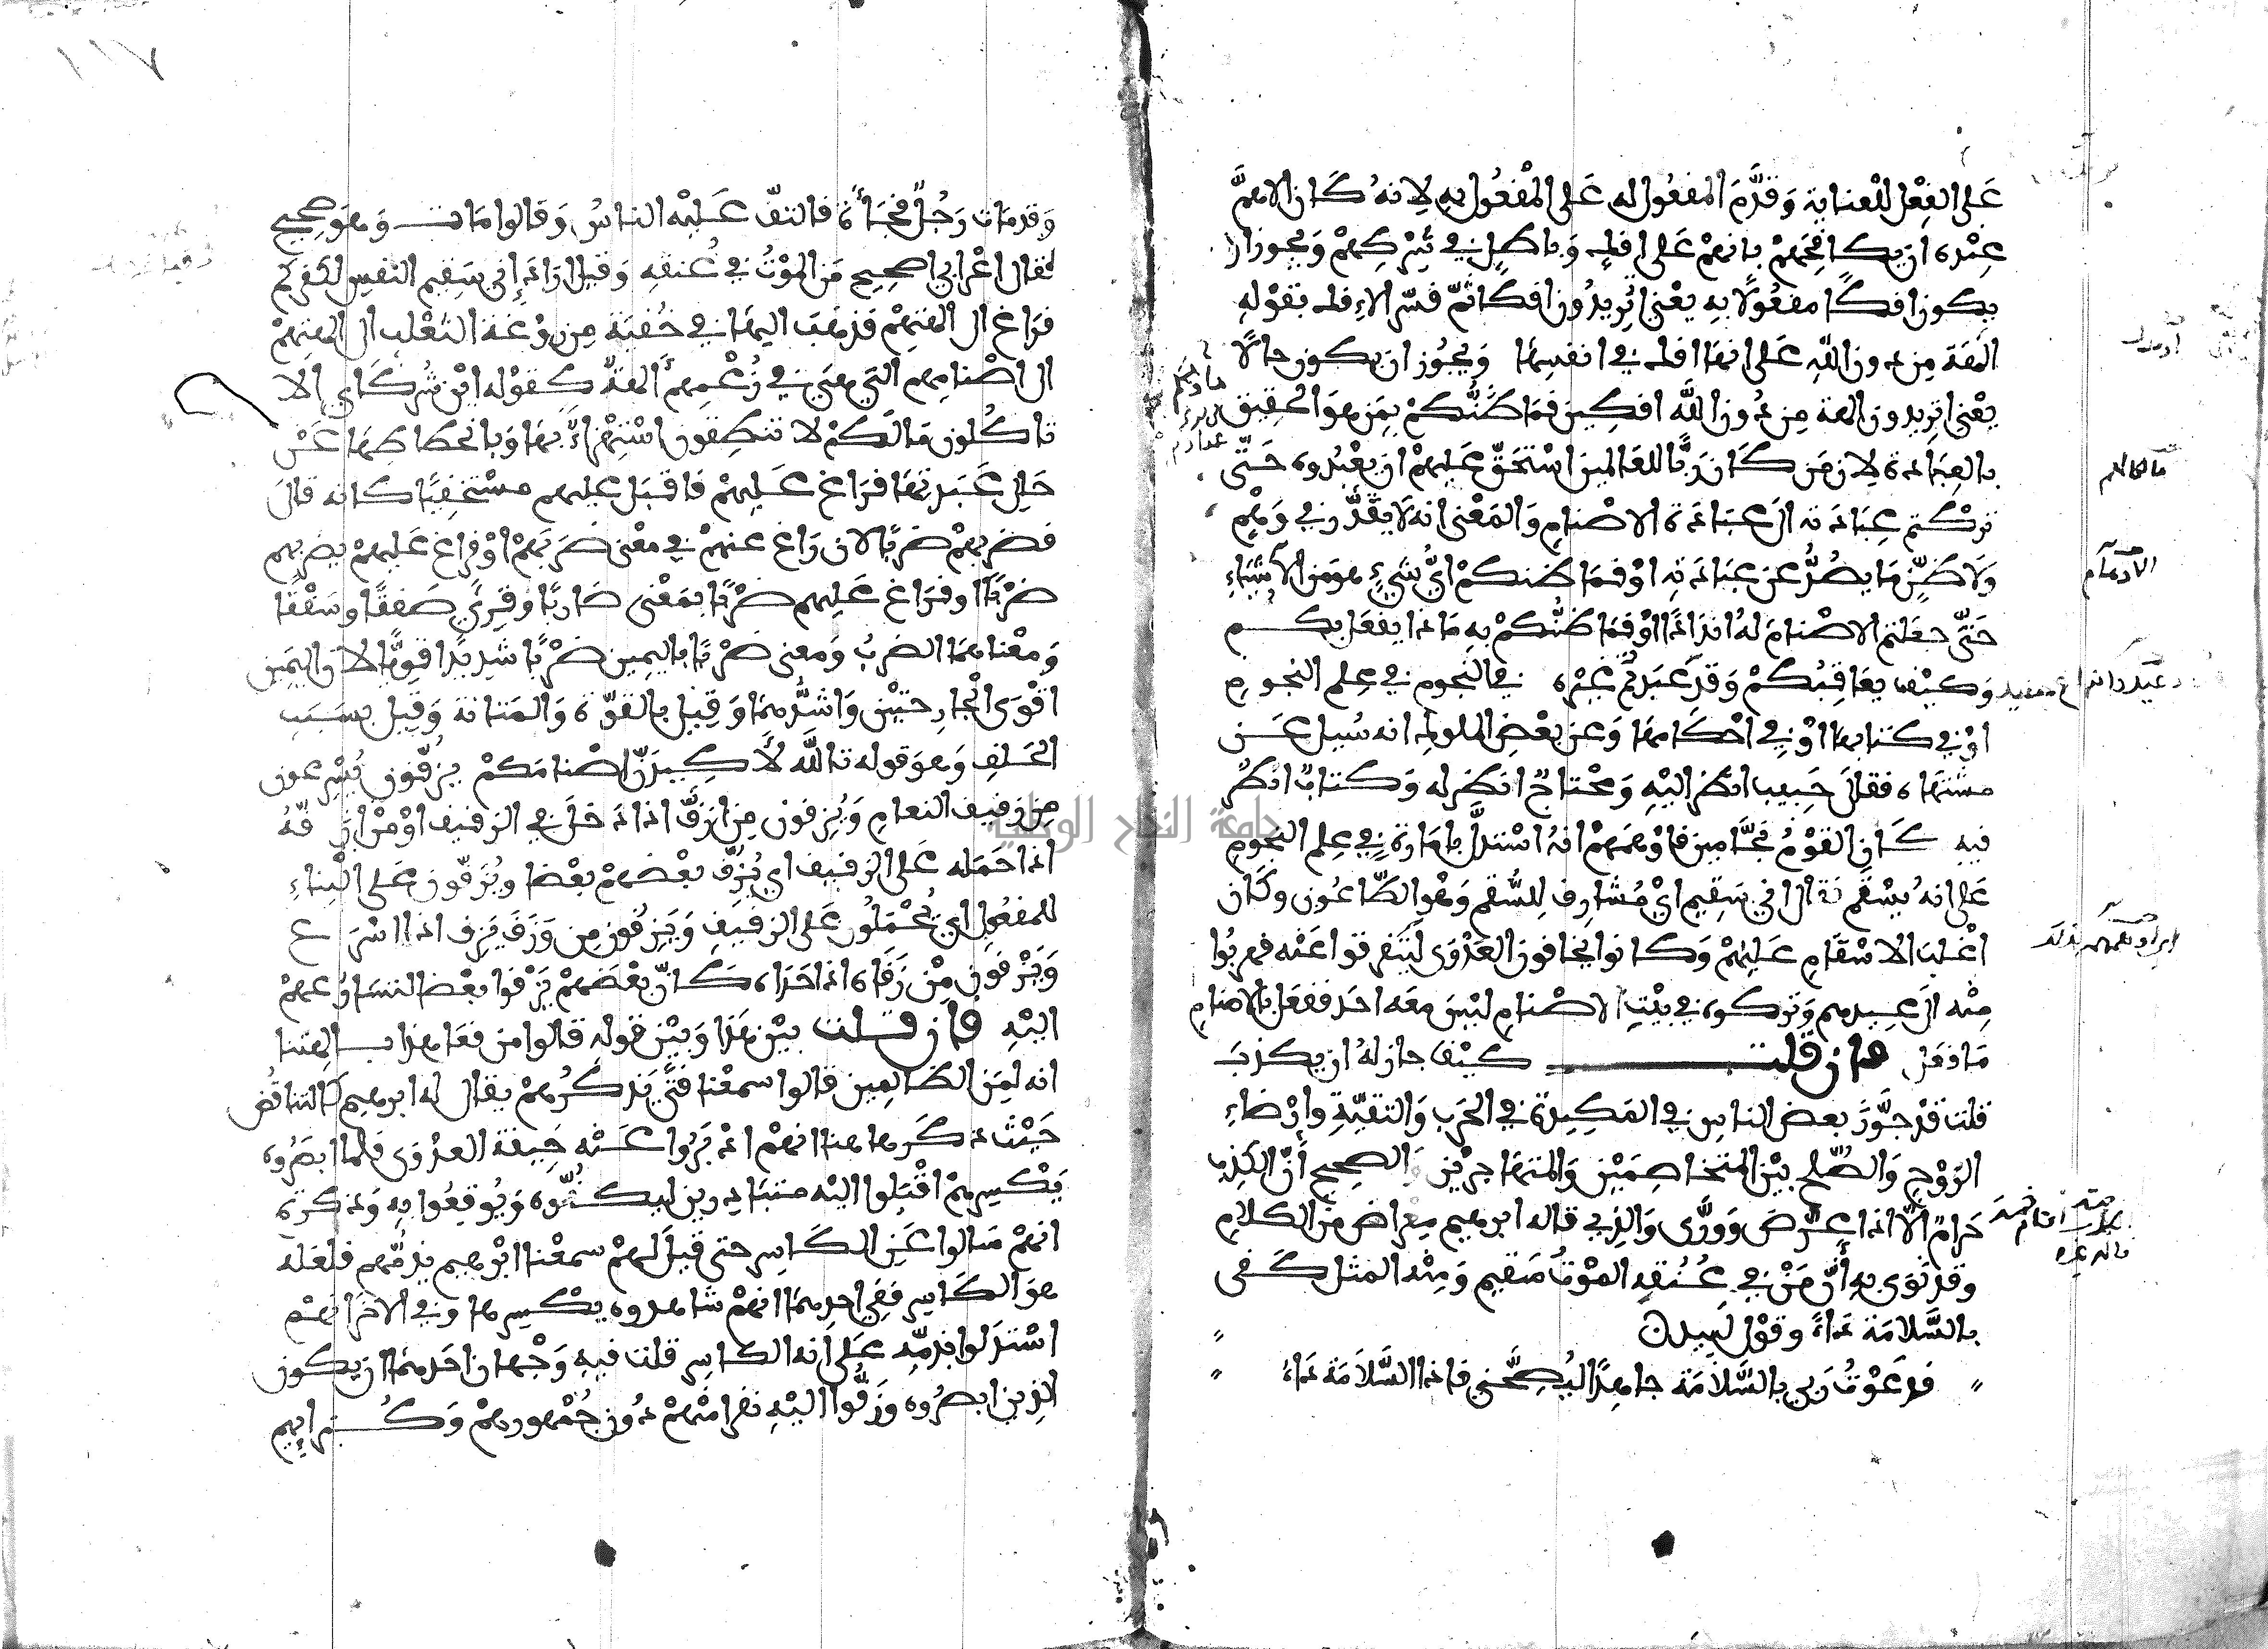 عَلى الفِعْل للعناية وَقدَّمَ المفعُول له عَلى المفْعُول بهِ لانهُ كَان الاهمَّ
عِنْده ان يكافِحَهمْ بانهمْ عَلى افك وَباطِل في شِرْكِهمْ وَيجوز ان
يكون افكًا مفعُولًا به يعْني اتُريدُون افكا ثمّ فسّر الافك بقوْلهِ
الهَة من دون اللّه عَلى انها افك في انفسِهَا وَيجُوز ان يكون حالًا
يعْني اتريدون الهة مِن دُون اللَّه افكين فمَا ظَنُّكمْ بمَن هوَ الحقِيق
بالعِبَادة لان مَن كَان رَبًّا للعَالمين اسْتحَقّ عَليهمْ ان يعْبُدوه حَتّى
ترَكْتم عِبَادَته الى عبَادَة الاصْنام وَالمَعْنى انه لَا يقدَّر في وَهْم
وَلا ظَنٍّ مَا يصُدُّ عن عِبَادَته اوْ فمَا ظنكمْ ايُّ شيْءٍ هوَ من الاشيَاء
حَتَّى جعَلتم الاصْنامَ لهُ اندَادًا اوْ فمَا ظَنُّكمْ بهِ مَاذا يفعَل بكم
وَكيْف يعَاقِبُكمْ وَقدْ عَبَدتمْ غيْره في النجوم في عِلم النجومِ
اوْ في كتابهَا اوْ في احْكَامهَا وَعن بعْضِ الملوك انه سُيل عَن
مشتهَاه فقالَ حَبيب انظر اليْهِ وَمحْتاجٌ انظر له وَكتابٌ انظر
فيهِ كَان القوْمُ نجّامِين فاوْهَمَهمْ انهُ اسْتدلَّ بامَارة في عِلم النجومِ
عَلى انهُ يسْقم فقال اني سَقِيم ايْ مُشارِف لِلسُّقم وَهْو الطّاعُون وكَان
اغْلبَ الاسْقام عَليْهمْ وَكانوا يخافون العَدْوَى ليتفرقوا عَنْه فهربُوا
مِنْه الى عِيدهم وَترَكوه في بيْتِ الاصْنام ليْسَ معَه احَد ففعَل بالاصْنامِ
مَا فعَل فان قلت كيْف جاز لهُ ان يكذبَ
قلت قدْ جوَّزَ بعض الناس في المكِيدة في الحَرْب وَالتقيّةِ وارْضاءِ
الزوْجِ وَالصُّلح بيْن المتخاصِمَيْن وَالمتهَاجرَيْن وَالصحِيح أَنّ الكَذبَ
حَرَامٌ الّا اذا عرَّضَ وَوَرَّى وَالذِي قاله ابرهيم معراض من الكلامِ
وقدْ نوَى بهِ أَنّ مَنْ في عُنُقهِ الموْت سَقيم وَمِنْه المثل كَفى
بالسَّلامَة دَاءً وقوْل لَبيدٍ
فدعَوْتُ رَبي بالسَّلَامَة جاهِدًا ليُصِحَّني فاذا السَّلَامَة دَاءُ
وَقد مات رَجُلٌ فَجْأَةً فالتفّ عَليْه الناسُ وَقالوا مَات وَهوَ صحِيح
فقال اعْرَابي اصحِيح مَن الموْتُ في عُنقهِ وَقيل ارَادَ اني سَقيم النفس لكفركم
فرَاغ الى الهَتهِمْ فذهَبَ اليهَا في خُفيَة مِن رَوْغَة الثعْلب الى الهتهِمْ
الى اصْنامهم التي هيَ في زَعْمِهم الهَةٌ كقوْله ايْن شُركَاي الا
تاكلون مَا لَكمْ لا تنطِقون اسْتهْزاءٌ بهَا وَبانحطاطِهَا عَنْ
حَال عَبَدتهَا فرَاغ عَليهمْ فاقبَل عليهم مسْتخفِيًا كانه قالَ
فضَرَبهمْ ضرْبًا لان رَاغ عنهمْ في معْنى ضَرَبَهمْ اوْ فرَاغ عَليهمْ يضربهم
ضرْبًا او فرَاغ عَليهم ضرْبًا بمَعْنى ضاربًا وقِرئَ صَفقًا وسَفْقًا
وَمعْناهمَا الضربُ وَمعنى ضرْبًا باليمِين ضرْبًا شدِيدًا قوِيًّا لان اليَمِين
اقوَى الجارحتيْن وَاشدُّهمَا وَقِيل بالقوّة وَالمتانة وَقِيل بسَبَبِ
الحَلفِ وَهوَ قوله تاللَّه لَأَكِيدَنّ اصْنامَكمْ يزفُّون يُسْرعون
مِن زفيف النعام وَيُزفون مِن ازَفَّ اذا دَخل في الزفيف اوْ مِنْ ازَفّهُ
اذا حَمَله عَلى الزفيف اي يُزفّ بعْضهمْ بعْضا ويُزَفون عَلى البناءِ
للمفعُول ايْ يُحْمَلون عَلى الزفيفِ وَيَزفُون مِن وَزَفَ يَزِف اذا اسْرَع
وَيَزْفون مِنْ زَفَاه اذا حَدَاه كَانّ بعْضَهمْ يَزْفوا بعْضا لتسَارُعهمْ
اليْهِ فان قلت بيْن هَذا وَبيْن قولِه قالوا من فعَل هَذا بالهتنا
انه لمِن الظالمِين قالوا سمعْنا فتًى يَذكُرُهمْ يقال له ابرهيم كَالتناقُض
حَيْث ذكر هاهنا انهمْ ادْبَرُوا عَنْه خِيفة العدْوَى فلما ابْصَرُوه
يَكْسِرهمْ اقْبَلوا اليْه متبَادِرين ليكفُّوه وَيُوقِعُوا بهِ وَذكر ثمّ
انهمْ سَالوا عَن الكَاسِر حتى قيلَ لهمْ سمعْنا ابْرهيم يذمّهم فلعَله
هوَ الكَاسِر فَفي احدِهمَا انهمْ شاهدوه يكْسِرها وفي الاخر انهمْ
اسْتدَلوا بذمِّه عَلى انه الكاسر قلت فيهِ وَجْهان احَدهمَا ان يكون
الذِين ابصرُوه وَزَفُّوا اليْهِ نفرا منْهمْ دُون جُمْهورِهمْ وَكُبَرائهم